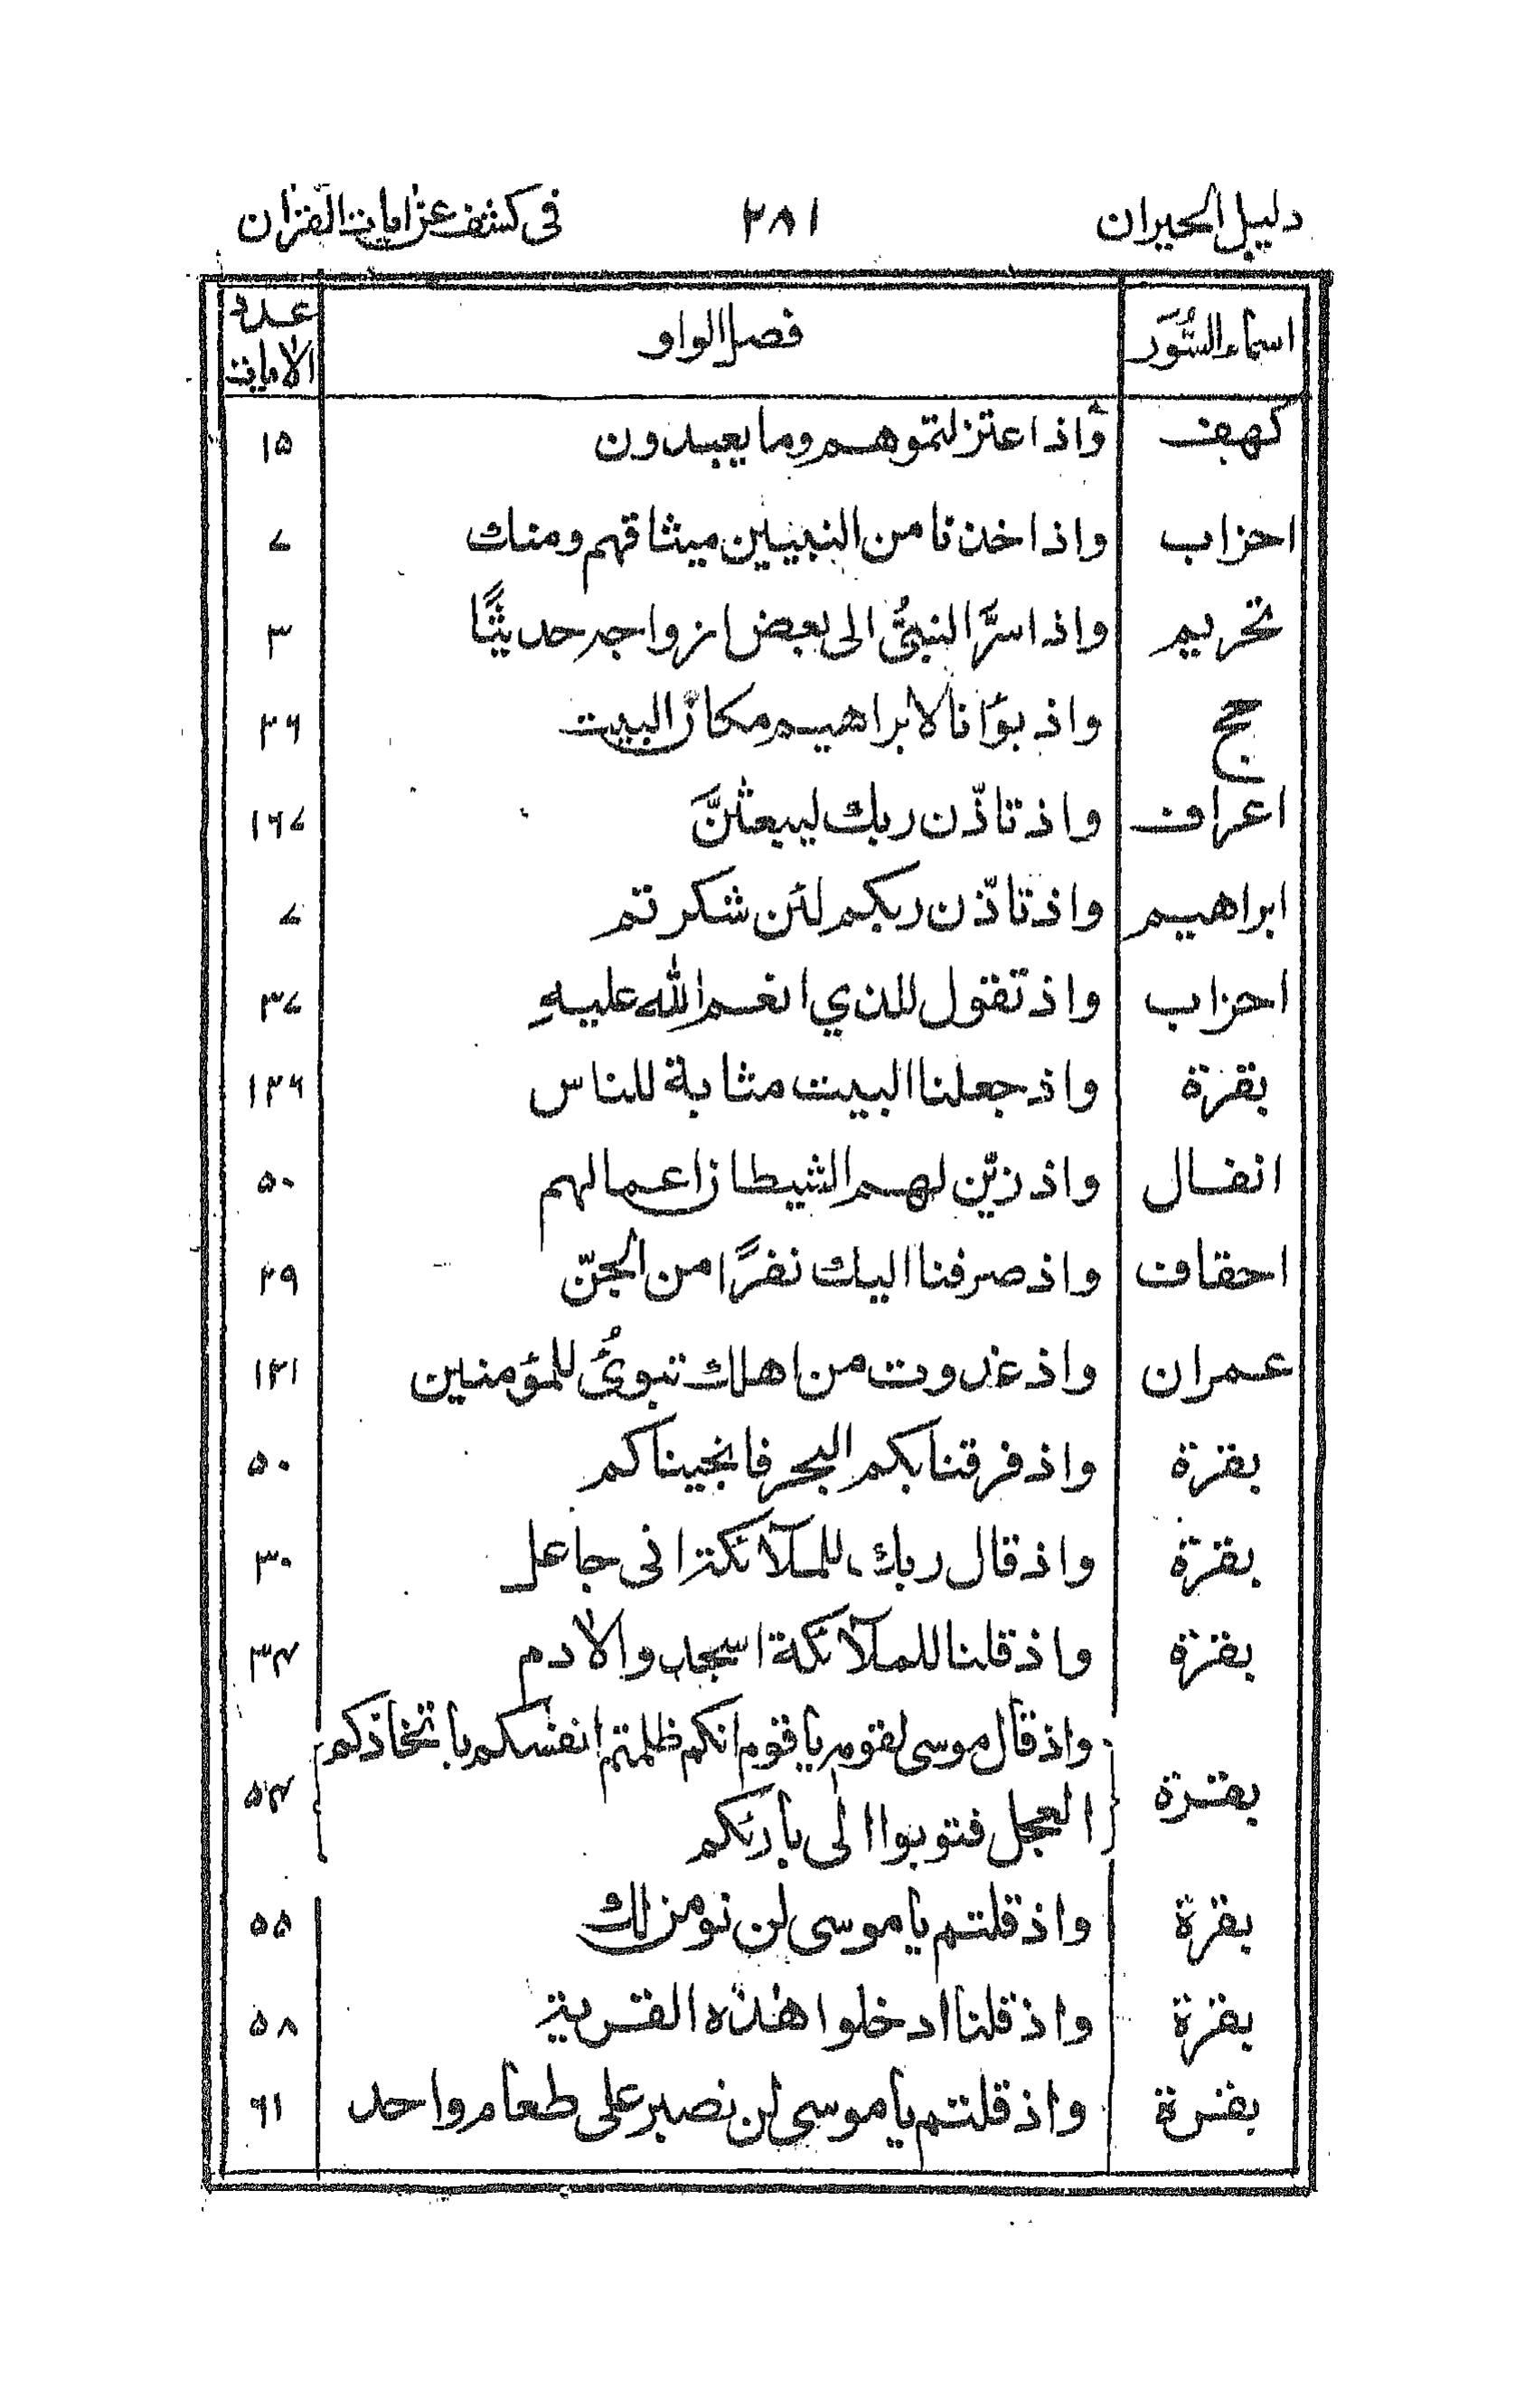 دليل الحيران ٢٨١ فى كشف عن ايات القران
اسماء السُّوَر فصل الواو عدد الايات
كهف واذ اعتزلتموهم وما يعبدون ١٥
احزاب واذ اخذنا من النبيين ميثاقهم ومنك ٧
تحريم واذ اسرَّ النبىُّ الى بعض ازواجه حديثًا ٣
حج واذ بوّأنا لابراهيم مكان البيت ٢٦
اعراف واذ تاذّن ربك ليبعثنَّ ١٦٧
ابراهيم واذ تاذّن ربكم لئن شكرتم ٧
احزاب واذ تقول للذي انعم الله عليهِ ٣٧
بقرة واذ جعلنا البيت مثابة للناس ١٢٦
انفال واذ زيّن لهم الشيطان اعمالهم ٥٠
احقاف واذ صرفنا اليك نفرًا من الجنّ ٢٩
عمران واذ غدوت من اهلك تبوئُ للمؤمنين ١٢١
بقرة واذ فرقنا بكم البحر فانجيناكم ٥٠
بقرة واذ قال ربك للملآئكة انى جاعل ٣٠
بقرة واذ قلنا للملآئكة اسجدوا لادم ٣٤
بقرة واذ قال موسى لقومه يا قوم انكم ظلمتم انفسكم باتخاذكم ٥٤
العجل فتوبوا الى بارئكم
بقرة واذ قلتم يا موسى لن نومن لك ٥٥
بقرة واذ قلنا ادخلوا هذه القرية ٥٨
بقرة واذ قلتم يا موسى لن نصبر على طعام واحد ٦١